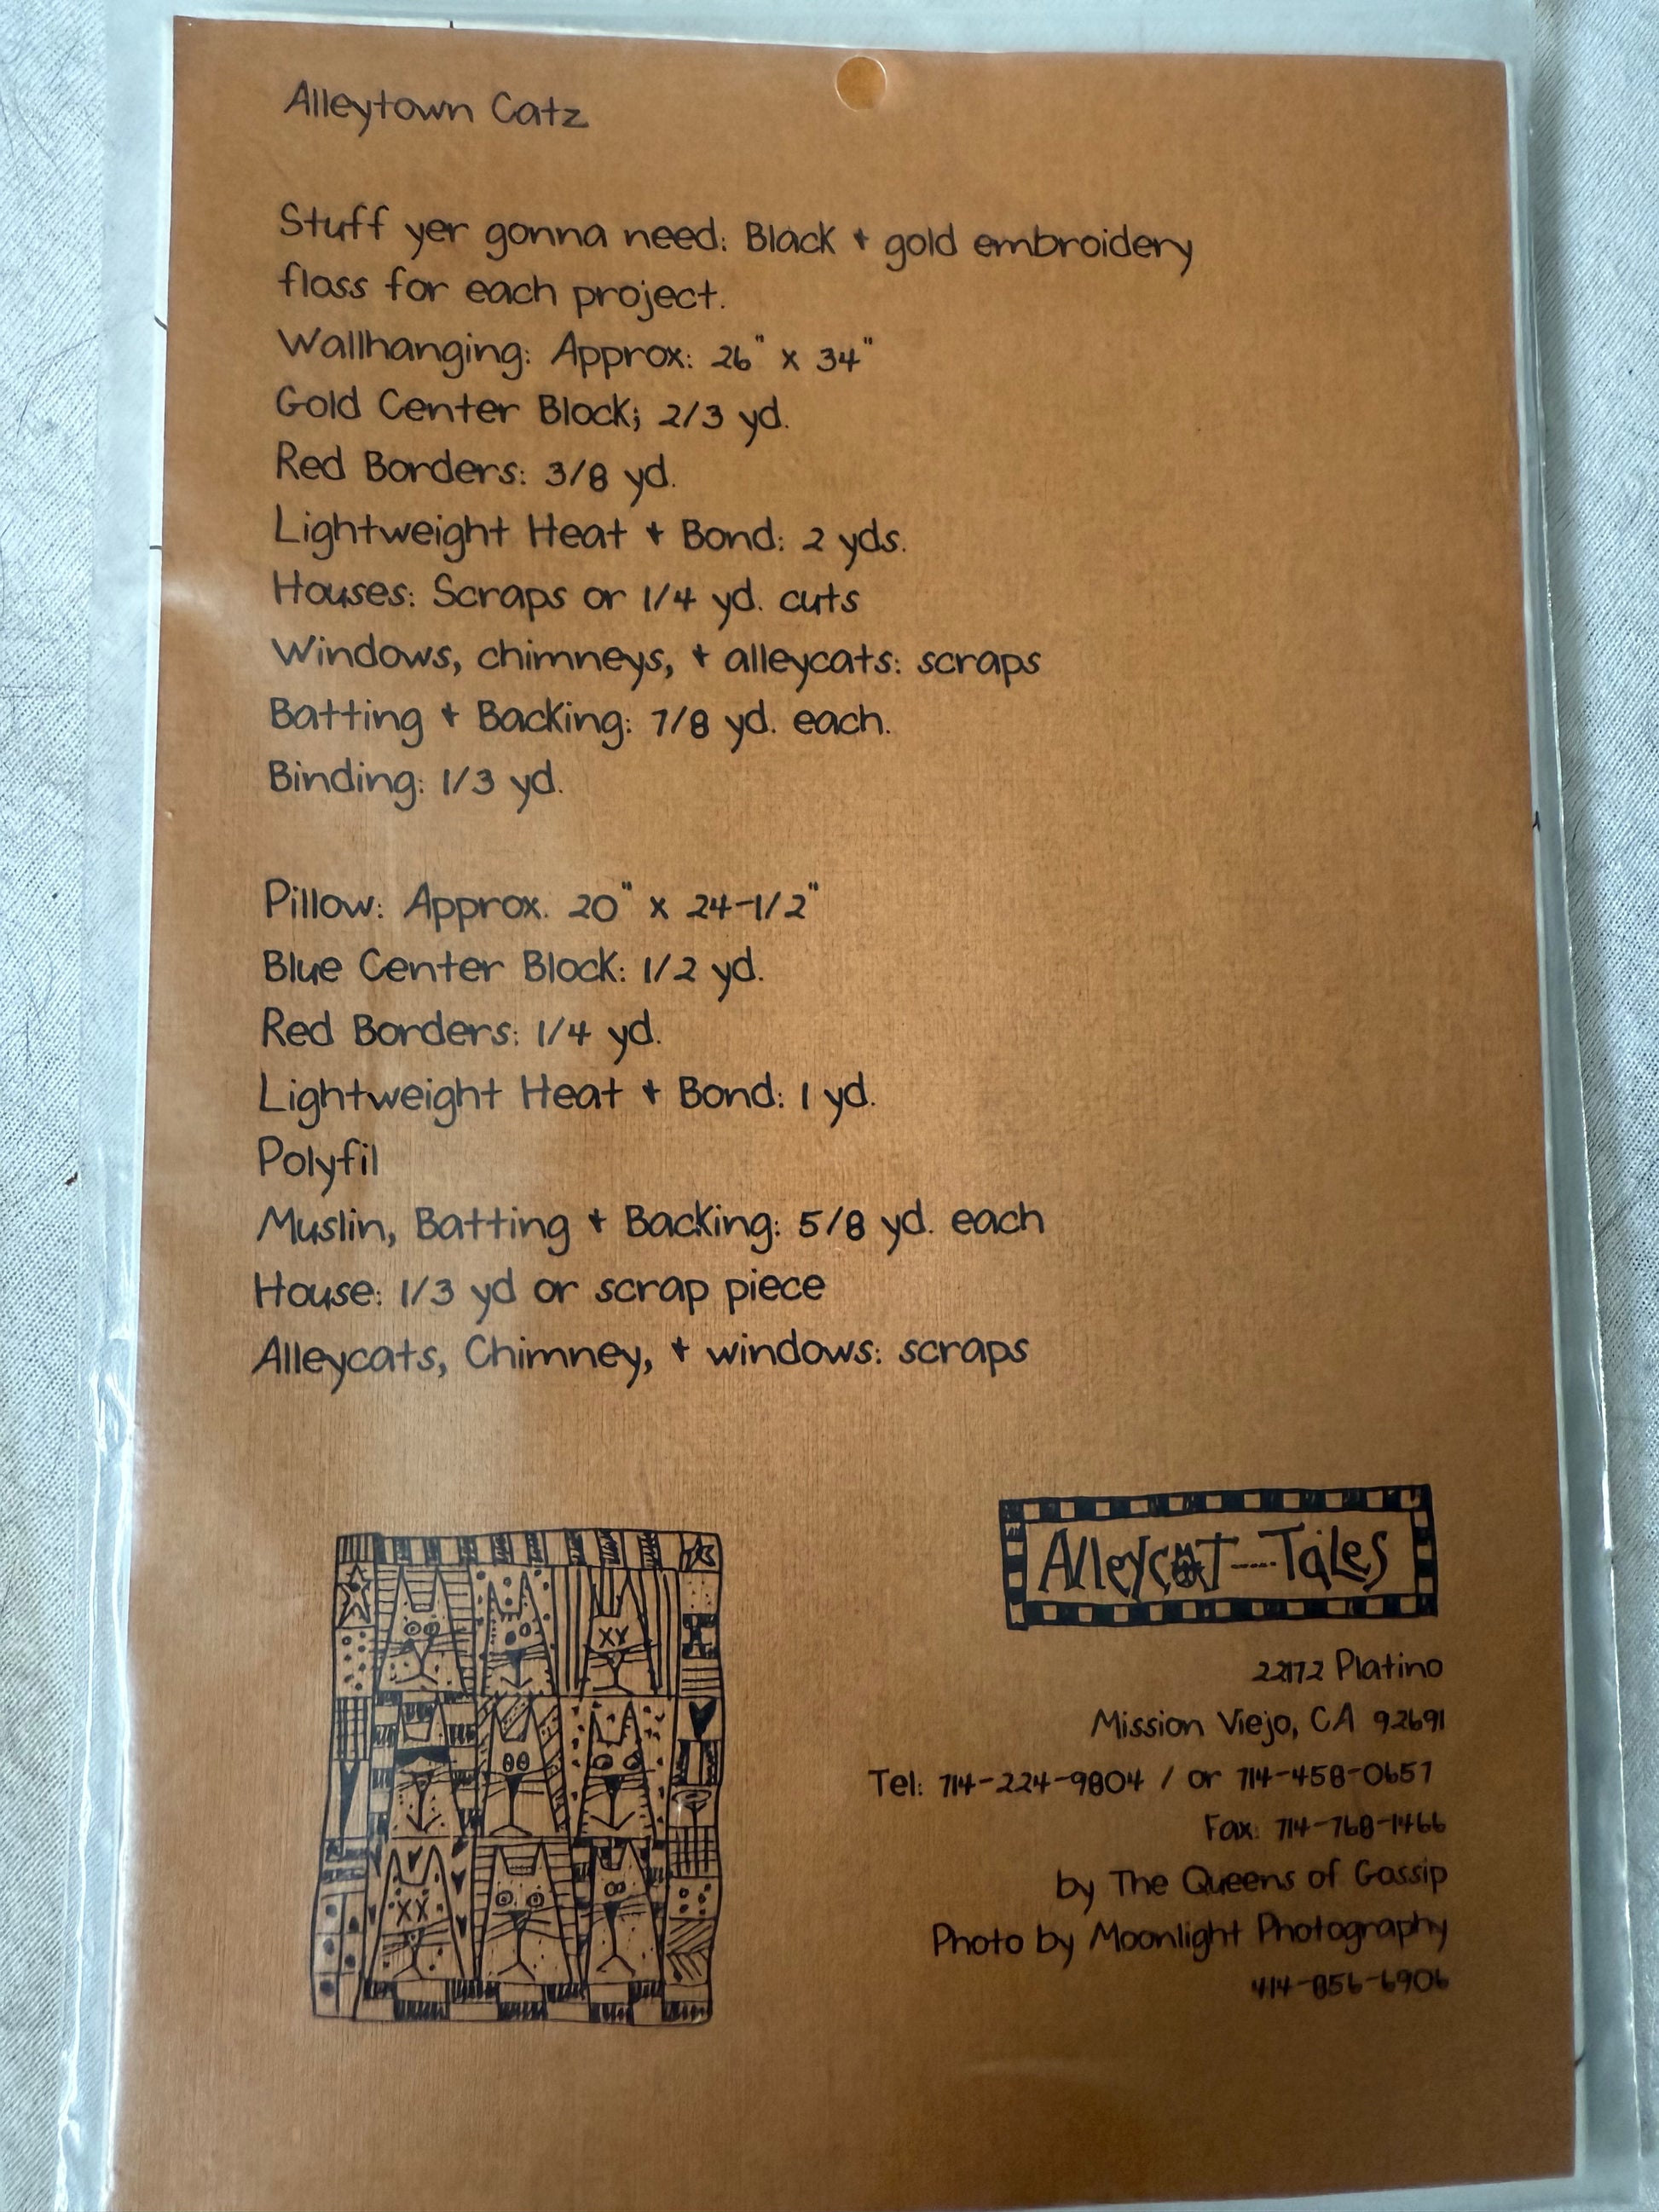 Alleytown Catz
Stuff yer gonna need: Black + gold embroidery
floss for each project.
Wallhanging: Approx: 26" x 34"
Gold Center Block; 2/3 yd.
Red Borders: 3/8 yd.
Lightweight Heat + Bond: 2 yds.
Houses: Scraps or 1/4 yd. cuts
Windows, chimneys, + alleycats: scraps
Batting + Backing: 7/8 yd. each.
Binding: 1/3 yd.
Pillow: Approx. 20" x 24-1/2"
Blue Center Block: 1/2 yd.
Red Borders: 1/4 yd.
Lightweight Heat + Bond: 1 yd.
Polyfil
Muslin, Batting + Backing: 5/8 yd. each
House: 1/3 yd or scrap piece
Alleycats, Chimney, + windows: scraps
Alleycat----Tales
22172 Platino
Mission Viejo, CA 92691
Tel: 714-224-9804 / or 714-458-0657
Fax: 714-768-1466
by The Queens of Gossip
Photo by Moonlight Photography
414-856-6906